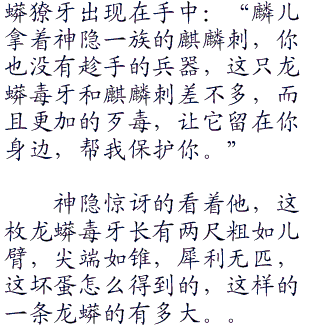 蟒獠牙出现在手中：“麟儿
拿着神隐一族的麒麟刺，你
也没有趁手的兵器，这只龙
蟒毒牙和麒麟刺差不多，而
且更加的歹毒，让它留在你
身边，帮我保护你。”
神隐惊讶的看着他，这
枚龙蟒毒牙长有两尺粗如儿
臂，尖端如锥，犀利无匹，
这坏蛋怎么得到的，这样的
一条龙蟒的有多大。。